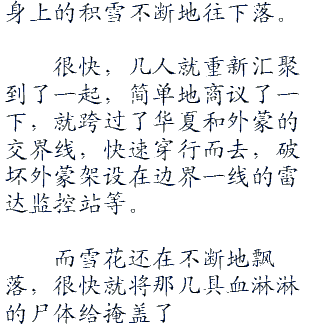 身上的积雪不断地往下落。
很快，几人就重新汇聚
到了一起，简单地商议了一
下，就跨过了华夏和外蒙的
交界线，快速穿行而去，破
坏外蒙架设在边界一线的雷
达监控站等。
而雪花还在不断地飘
落，很快就将那几具血淋淋
的尸体给掩盖了